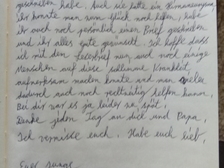 geschrieben habe. Auch sie hatte ein
ihr konnte man zum Glück noch helfen, habe
ihr auch noch persönlich einen Brief geschrieben
und ihr alles gute gewünscht. Ich hoffe dass
ich mit dem noch einige
Menschen auf diese schlimme Krankheit,
aufmerksam machen konnte und man vielen
dadurch auch noch rechtzeitig helfen kann.
Bei dir war es ja leider zu spät,
Denke jeden Tag an dich und Papa,
Ich vermisse euch. Habe euch lieb,
Euer